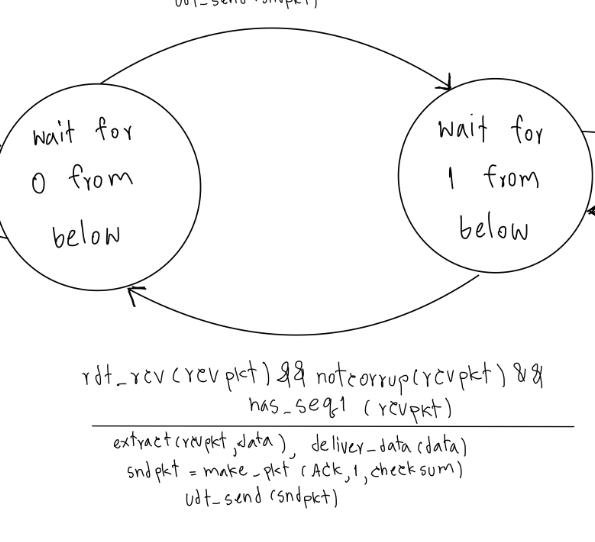 udt_send (sndpkt)
wait for
0 from
below
wait for
1 from
below
rdt_rcv (rcvpkt) && notcorrup(rcvpkt) &&
has_seq1 (rcvpkt)
extract(rcvpkt,data), deliver_data (data)
sndpkt = make_pkt (Ack,1,checksum)
udt_send (sndpkt)